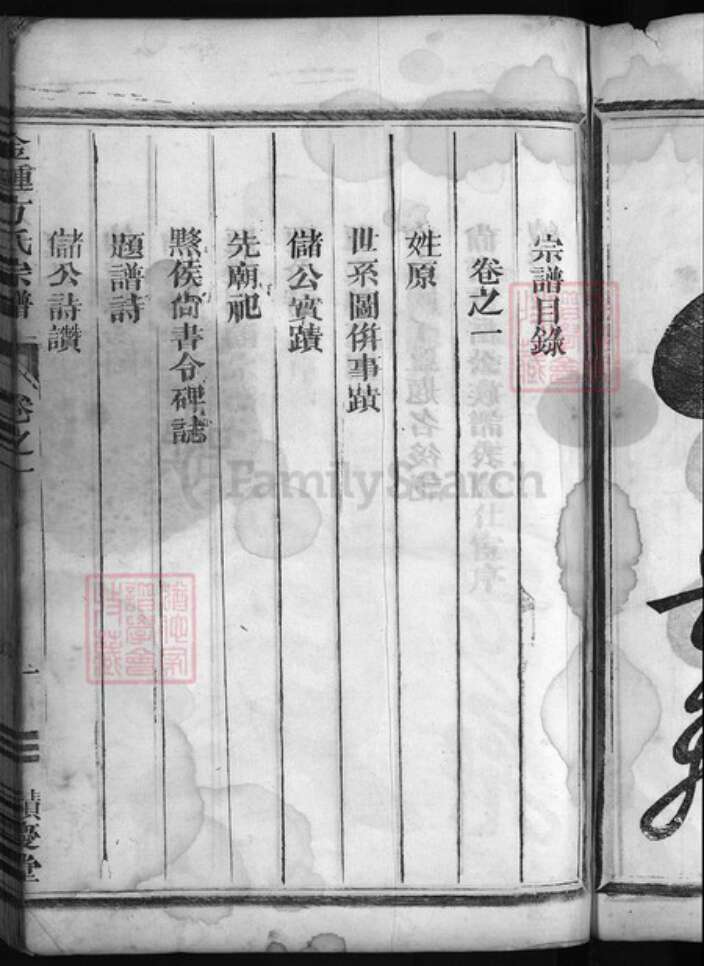 宗譜目錄
卷之一
姓原
世系圖併事蹟
儲公實蹟
先廟祀
黟侯尙書令碑誌
題譜詩
儲公詩讚
方氏宗譜
卷之一
一
堂
FamilySearch